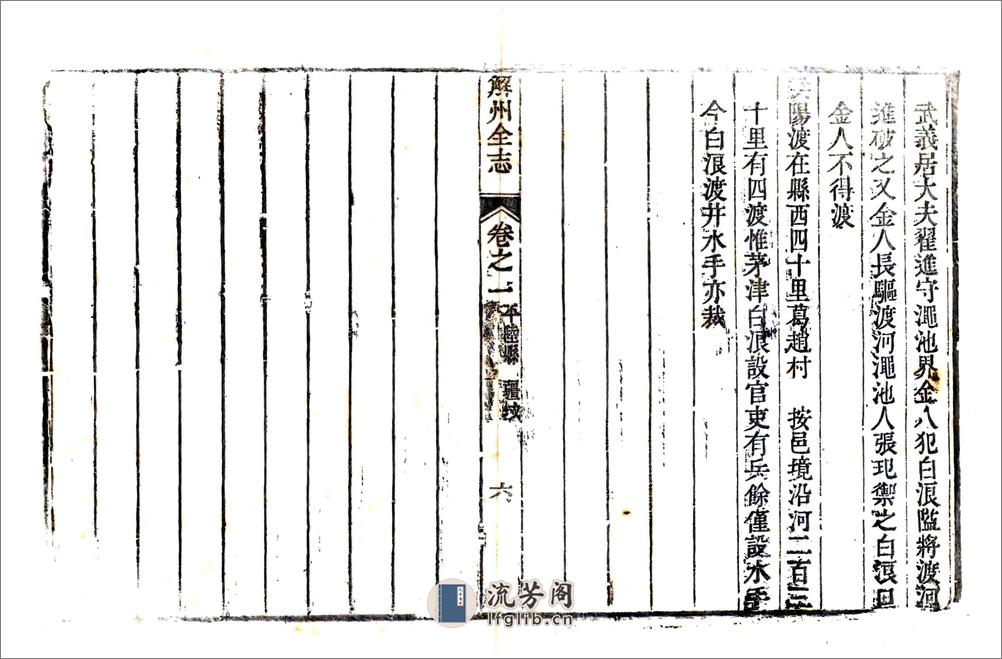 武義居大夫翟進守澠池界金人犯白浪隘將渡河
進破之又金人長驅渡河澠池人張玘禦之白浪口
金人不得渡
陽渡在縣西四十里葛趙村 按邑境沿河二百三
十里有四渡惟茅津白浪設官吏有兵餘僅設水手
今白浪渡并水手亦裁
解州全志 卷之一 平陸縣 疆域 六
流芳阁
lfglib.cn